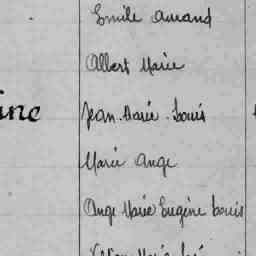 Emile Amand
Albert Marie
Jean-Marie-Louis
Marie Ange
Ange Marie Eugène Louis